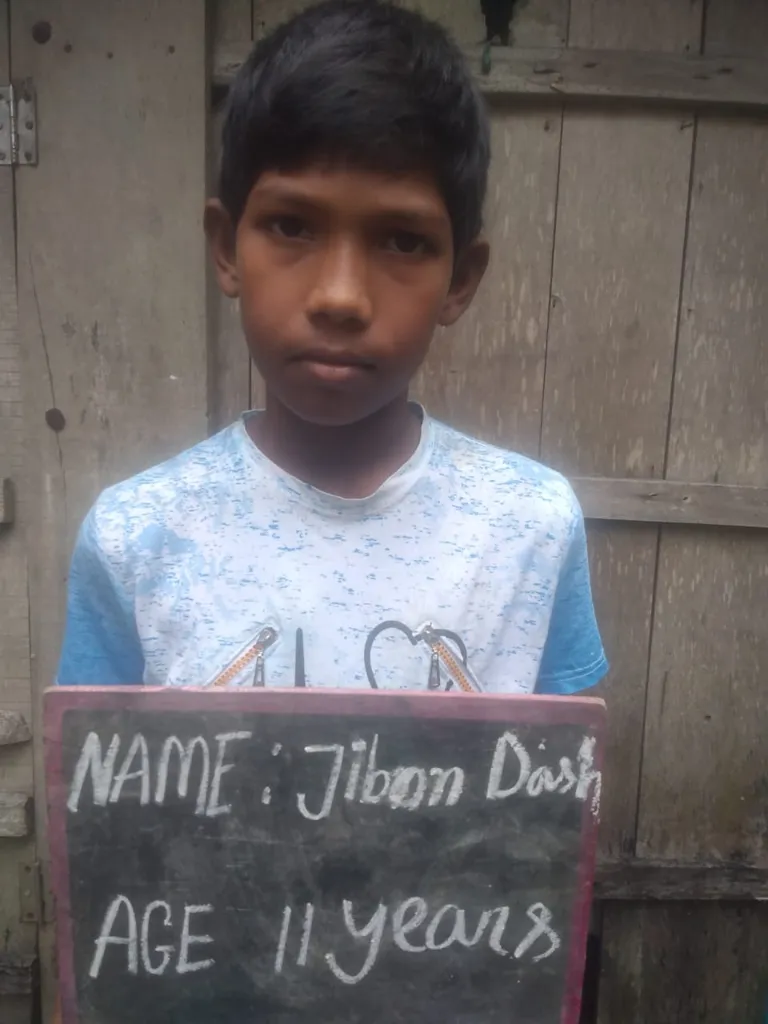 NAME : Jibon Dash
AGE 11 years